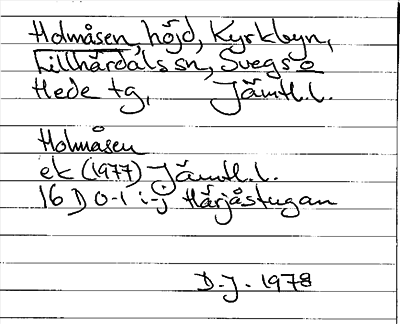 Holmåsen, höjd, Kyrkbyn,
Lillhärdals sn, Svegs o
Hede tg, Jämtl.l.
Holmåsen
ek (1977) Jämtl.l.
16 D 0-1 i-j Härjåstugan
D.J. 1978